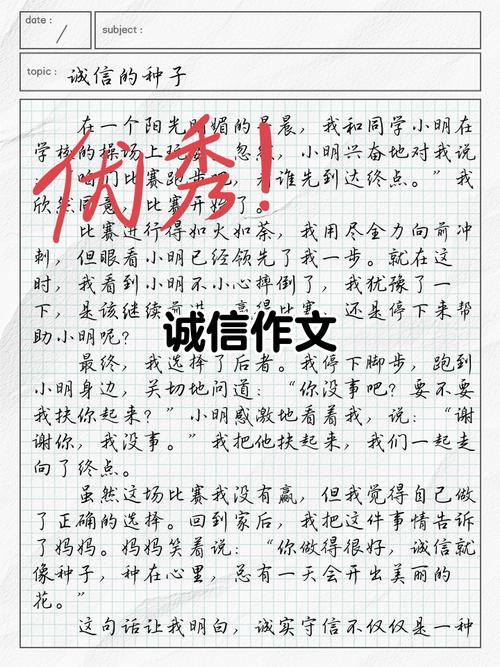 date :
subject :
topic : 诚信的种子
在一个阳光明媚的早晨，我和同学小明在
学校的操场上玩。忽然，小明兴奋地对我说
：“咱们比赛跑步吧，看谁先到达终点。”我
欣然同意，比赛开始了。
优秀！
比赛进行得如火如荼，我用尽全力向前冲
刺，但眼看小明已经领先了我一步。就在这
时，我看到小明不小心摔倒了，我犹豫了一
下，是该继续前进，赢得比赛，还是停下来帮
助小明呢？
诚信作文
最终，我选择了后者。我停下脚步，跑到
小明身边，关切地问道：“你没事吧？要不要
我扶你起来？”小明感激地看着我，说：“谢
谢你，我没事。”我把他扶起来，我们一起走
向了终点。
虽然这场比赛我没有赢，但我觉得自己做
了正确的选择。回到家后，我把这件事情告诉
了妈妈。妈妈笑着说：“你做得很好，诚信就
像种子，种在心里，总有一天会开出美丽的
花。”
这句话让我明白，诚实守信不仅仅是一种